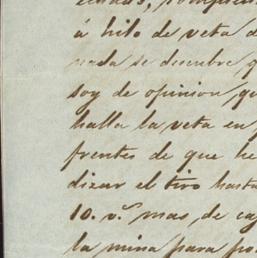 á hilo de veta d
nada se descubre q
soy de opinion qu
halla la veta en
frentes de que he
dizar el tiro hasta
10. v.s mas, de ca
la mina para po